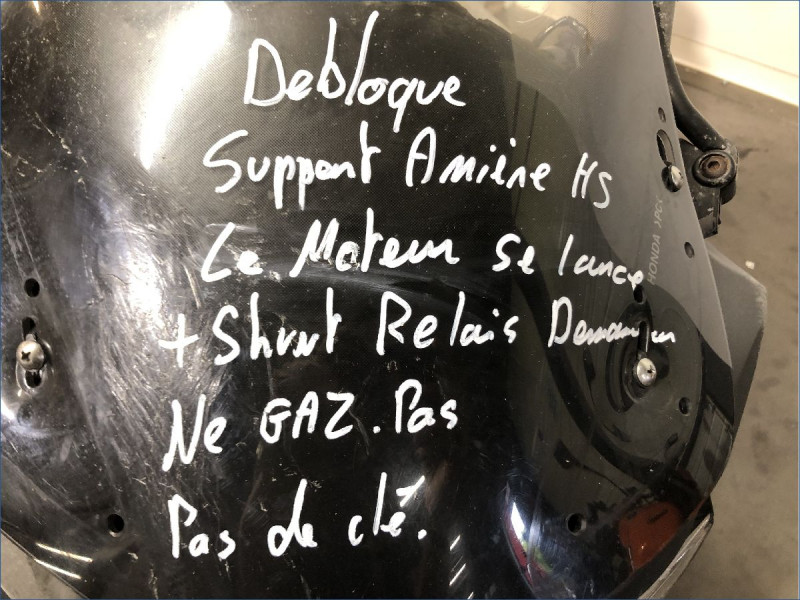 Debloque
Support Arrière HS
Le Moteur se lance
+ Shunt Relais Demarreur
Ne GAZ. Pas
Pas de clé.
HONDA SPEC